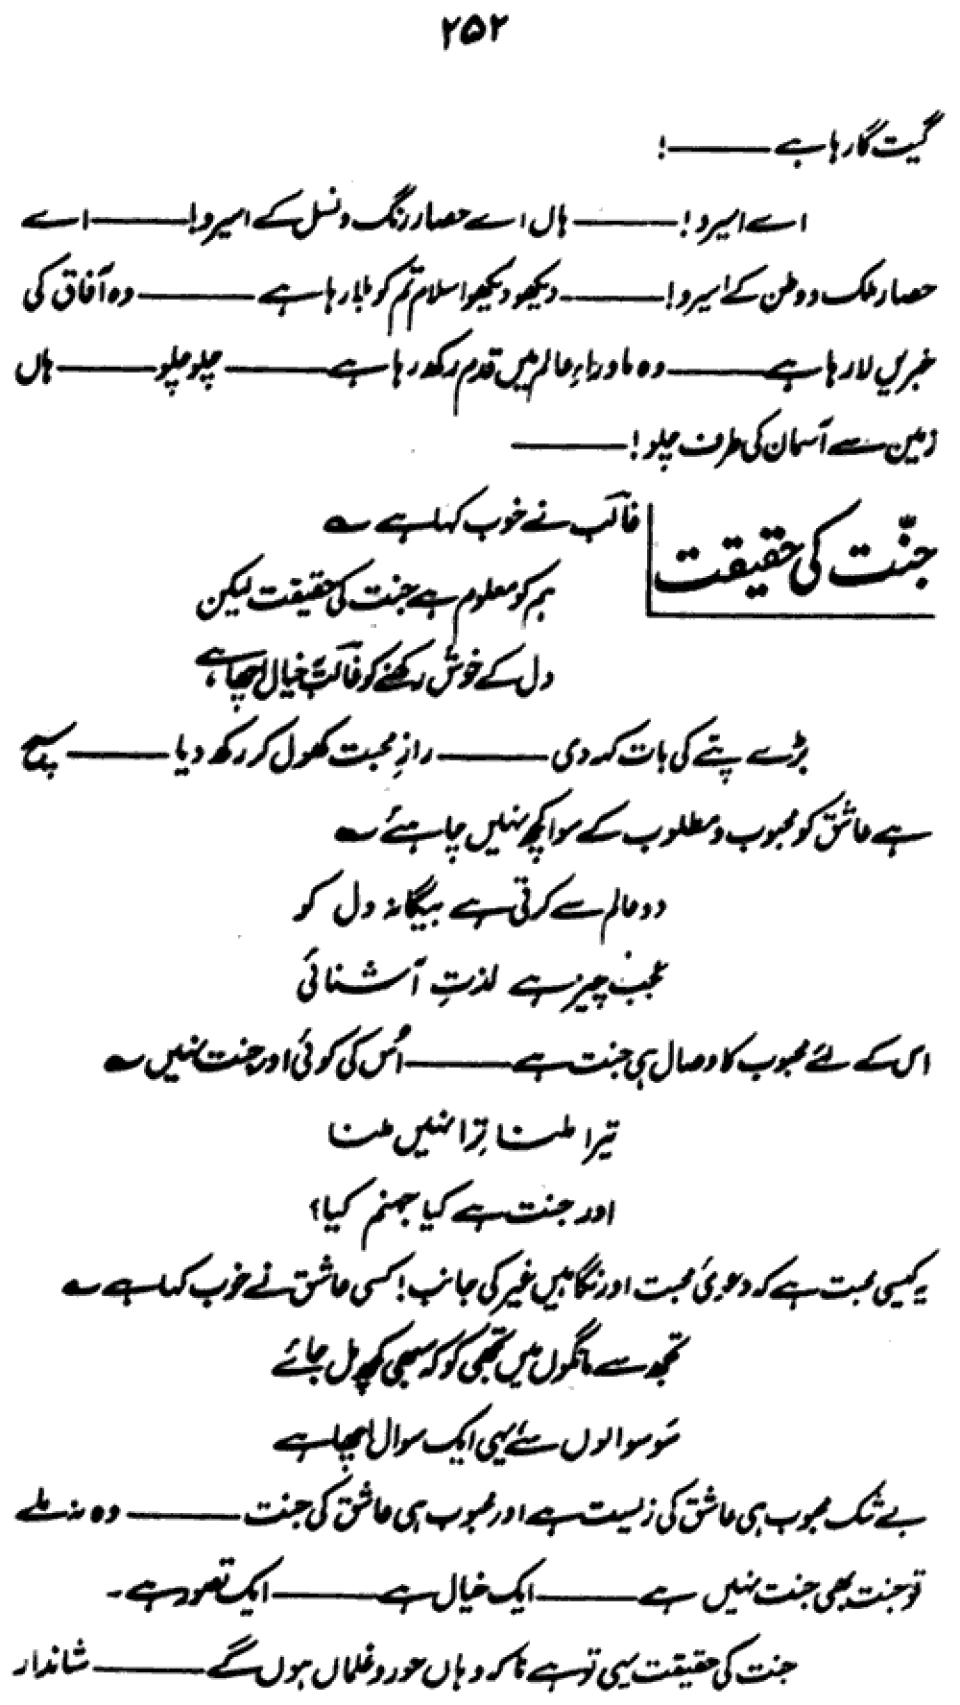 ۲۵۲
گیت گا رہا ہے ———!
اے اسیرو! ——— ہاں اے حصارِ رنگ و نسل کے اسیرو! ——— اے
حصارِ ملک و وطن کے اسیرو! ——— دیکھو دیکھو اسلام تم کو بلا رہا ہے ——— وہ آفاق کی
خبریں لا رہا ہے ——— وہ ماوراءِ عالم میں قدم رکھ رہا ہے ——— چلو چلو ——— ہاں
زمین سے آسمان کی طرف چلو! ———
جنّت کی حقیقت
غالب نے خوب کہا ہے ؎
ہم کو معلوم ہے جنت کی حقیقت لیکن
دل کے خوش رکھنے کو غالبؔ یہ خیال اچھا ہے
بڑے پتے کی بات کہہ دی ——— رازِ محبت کھول کر رکھ دیا ——— یہ سچ
ہے عاشق کو محبوب و مطلوب کے سوا کچھ نہیں چاہئے ؎
دو عالم سے کرتی ہے بیگانہ دل کو
عجب چیز ہے لذتِ آشنائی
اس کے لئے محبوب کا وصال ہی جنت ہے ——— اُس کی کوئی اور جنت نہیں ؎
تیرا ملنا تِرا نہیں ملنا
اور جنت ہے کیا جہنم کیا؟
یہ کیسی محبت ہے کہ دعویٔ محبت اور نگاہیں غیر کی جانب! کسی عاشق نے خوب کہا ہے ؎
تجھ سے مانگوں میں تجھی کو کہ سبھی کچھ مل جائے
سَو سوالوں سے یہی ایک سوال اچھا ہے
بے شک محبوب ہی عاشق کی زیست ہے اور محبوب ہی عاشق کی جنت ——— وہ نہ ملے
تو جنت بھی جنت نہیں ہے ——— ایک خیال ہے ——— ایک تصور ہے۔
جنت کی حقیقت یہی تو ہے نا کہ وہاں حور و غلماں ہوں گے ——— شاندار